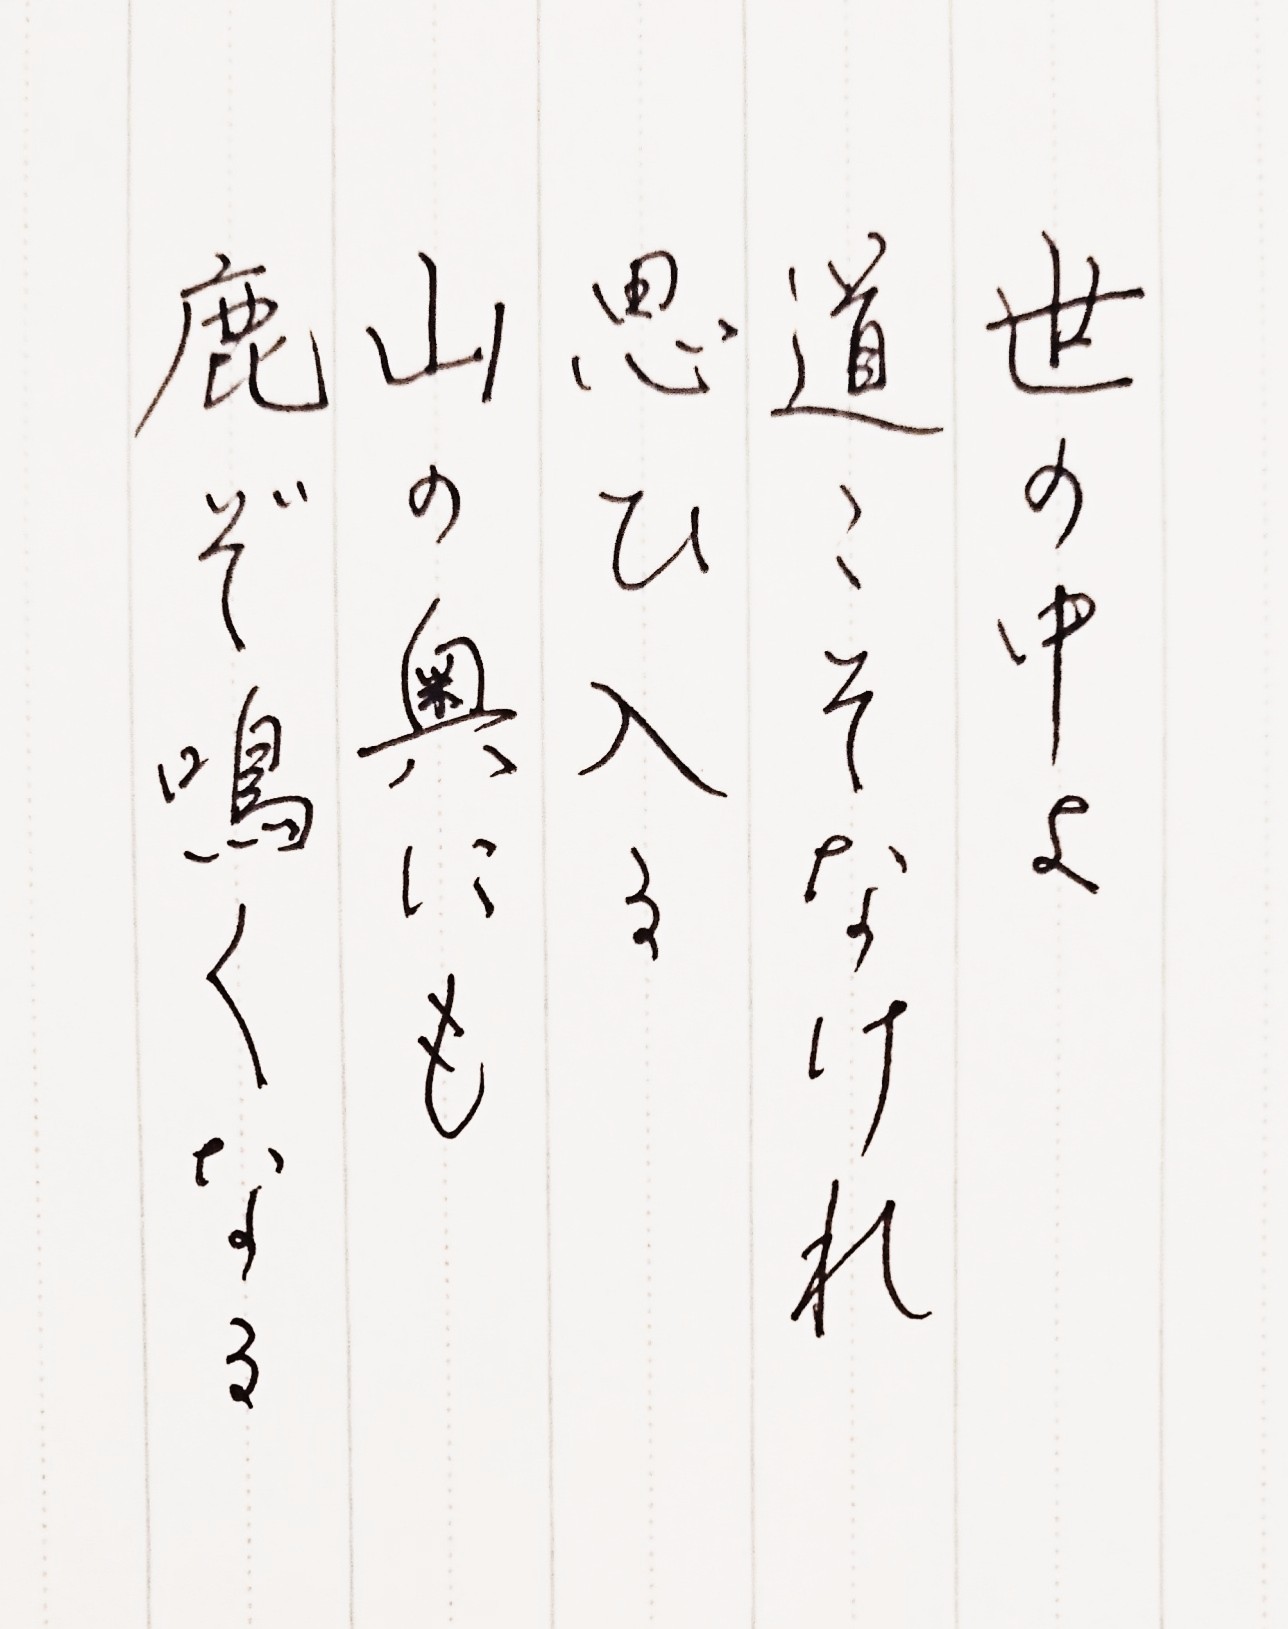 世の中よ
道こそなけれ
思ひ入る
山の奥にも
鹿ぞ鳴くなる